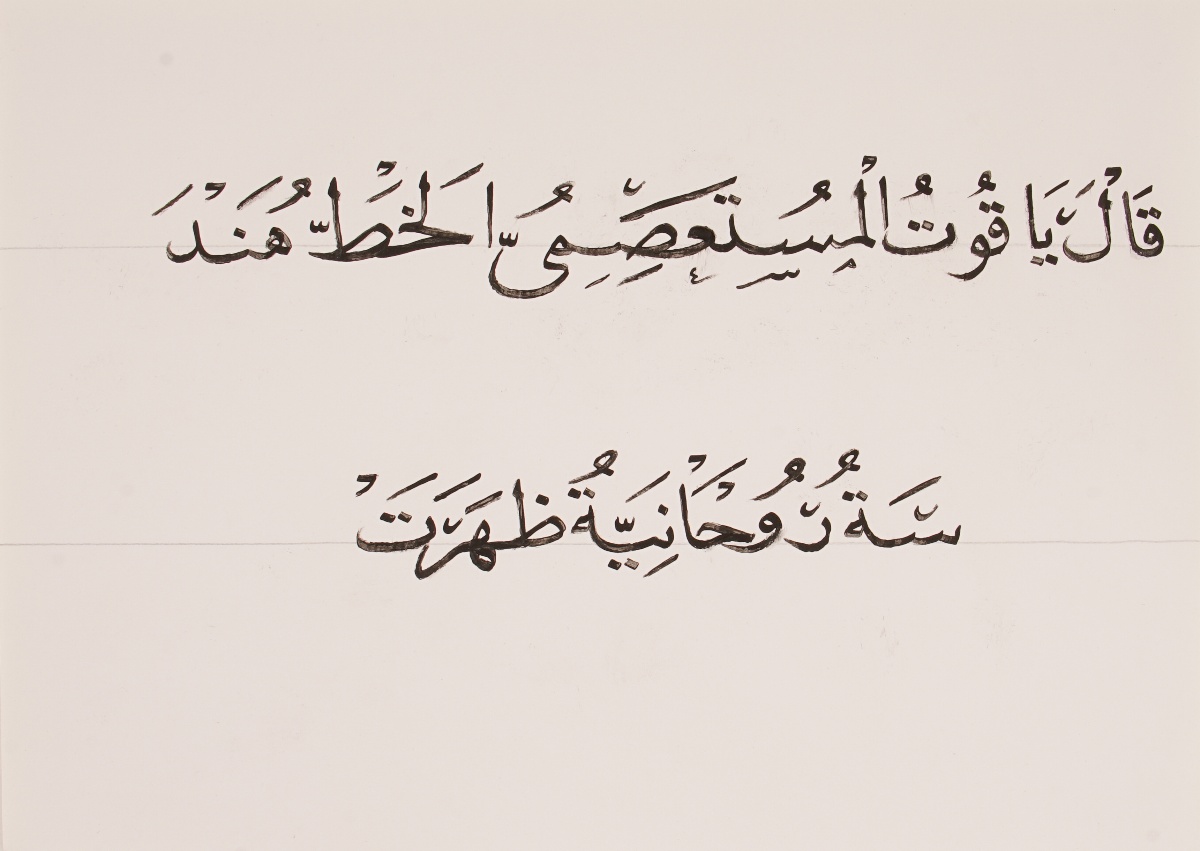 قَالَ يَا قُوتُ الْمُسْتَعْصِمِىُّ اَلْخَطُّ هَنْدَ
سَةٌ رُوْحَانِيَّةٌ ظَهَرَتْ